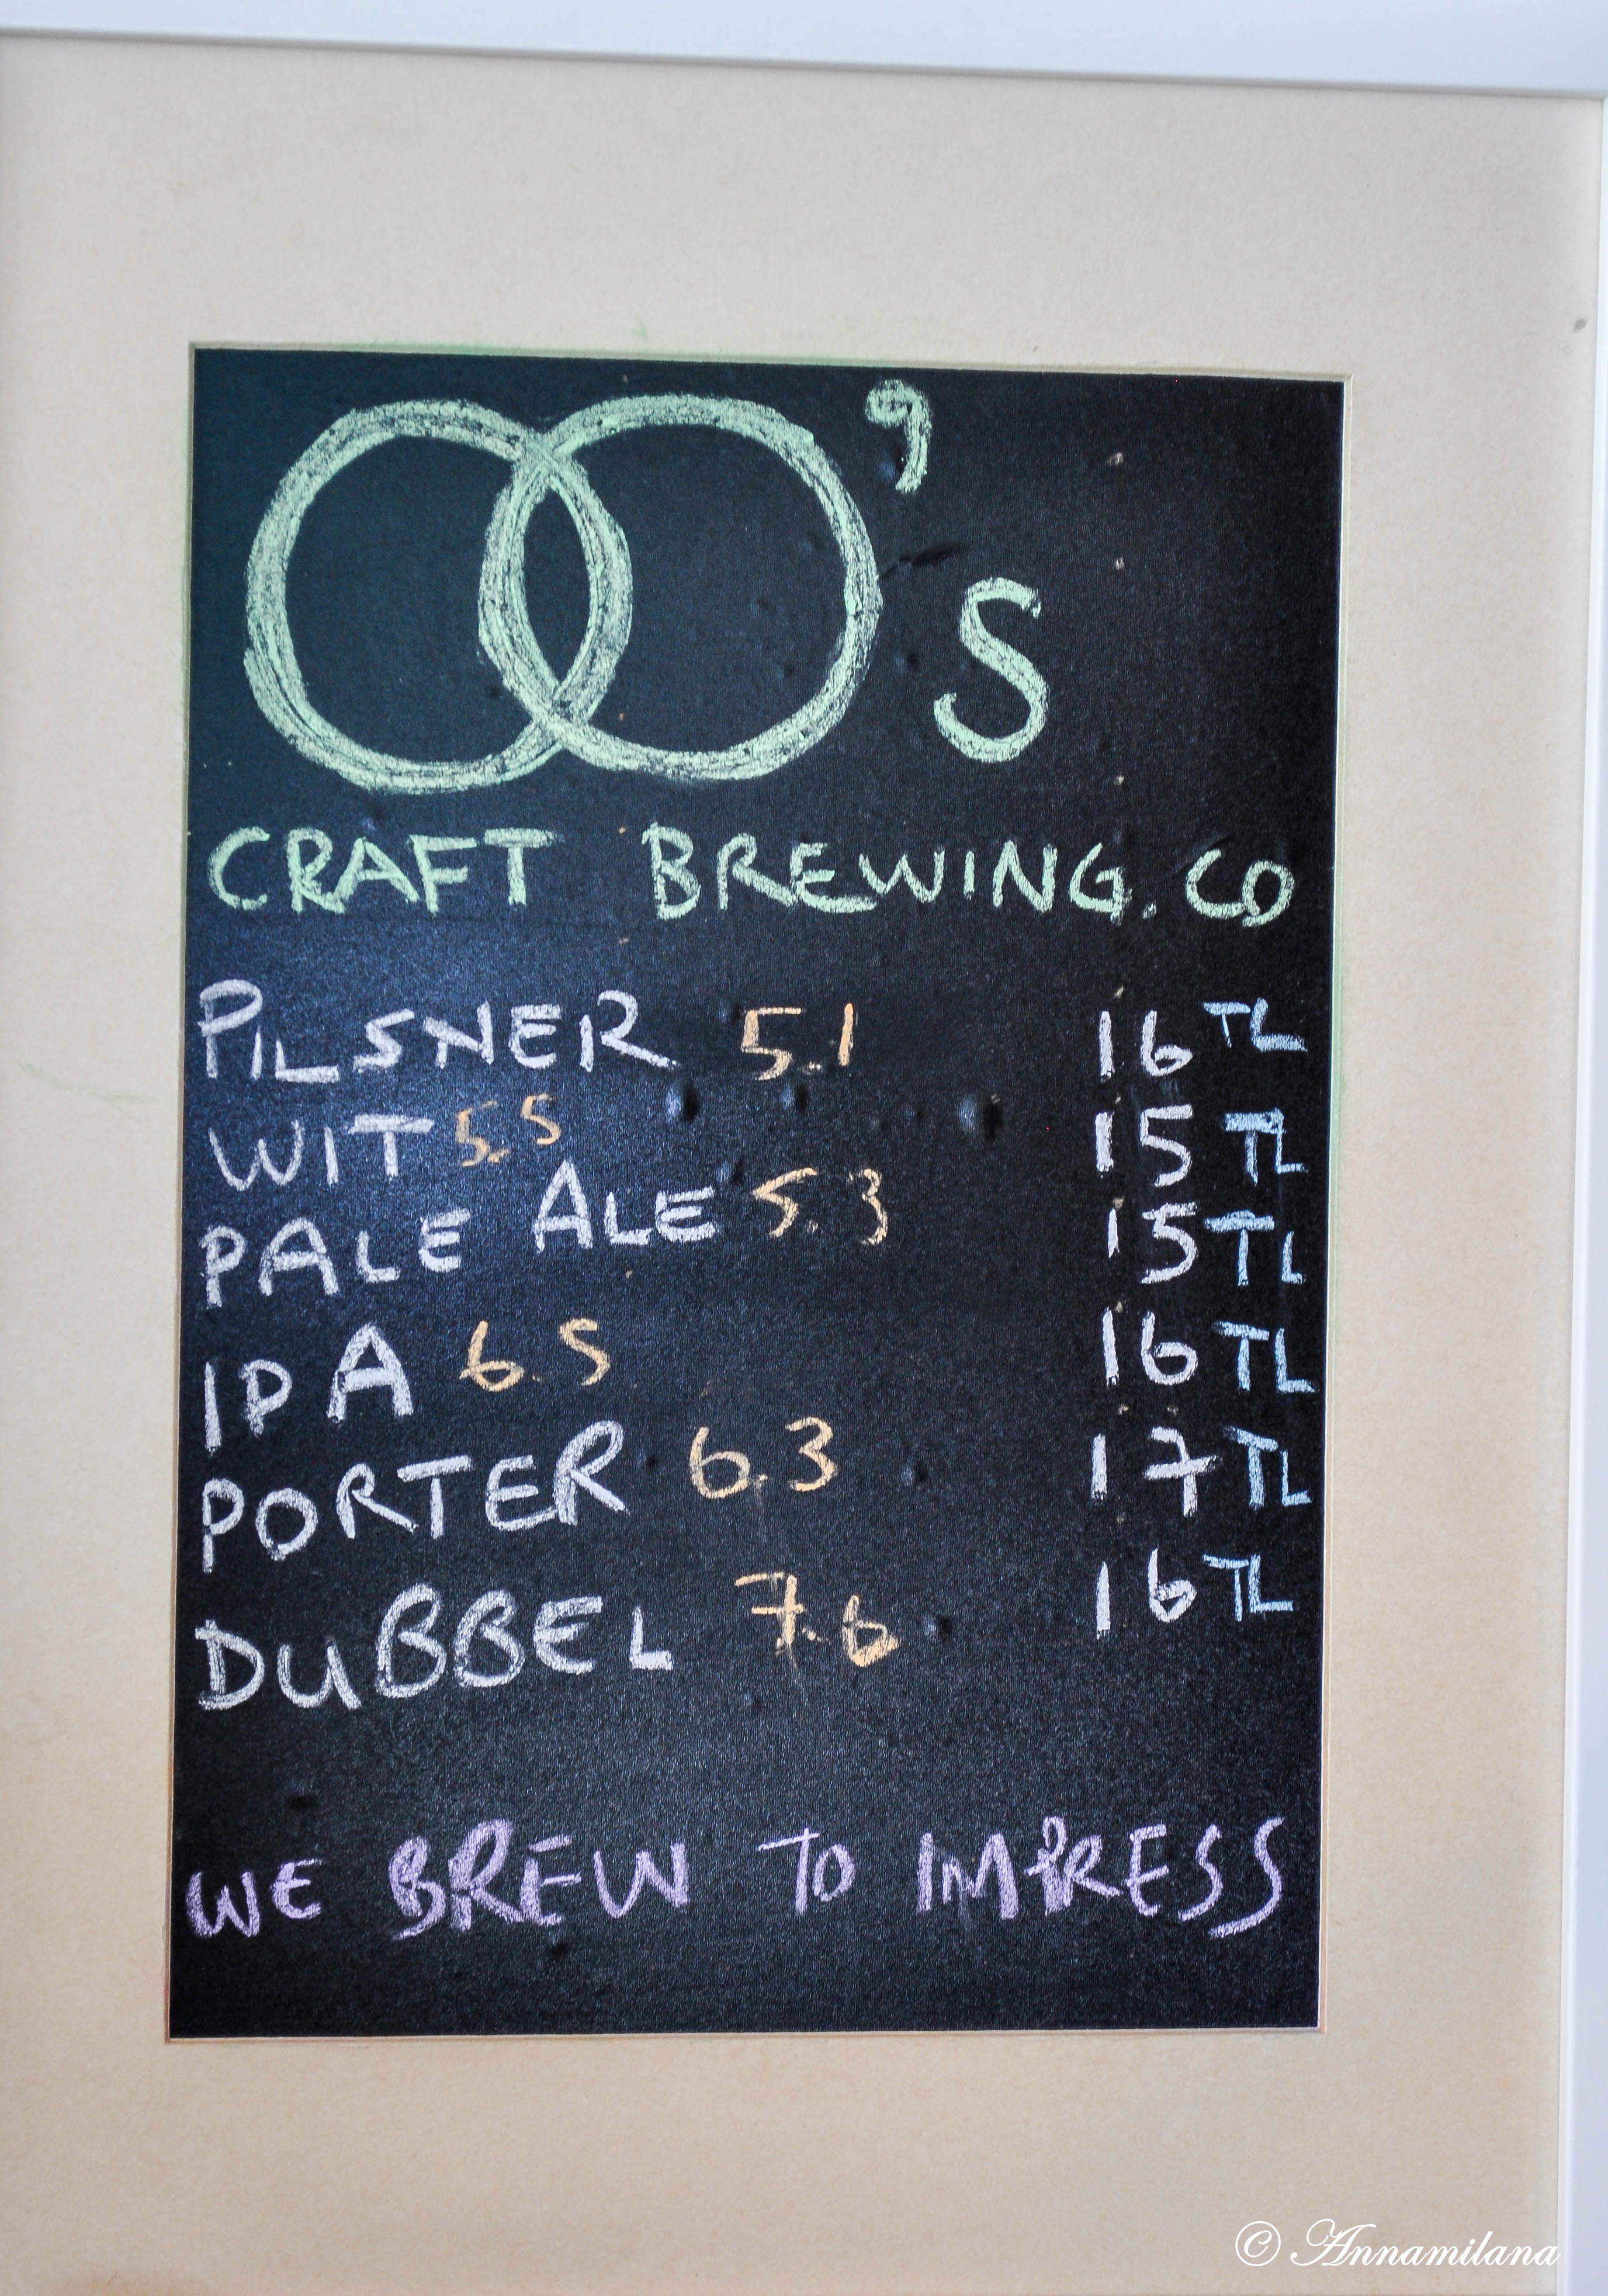 OO's
CRAFT BREWING.CO
PILSNER 5.1 16 TL
WIT 5.5 15 TL
PALE ALE 5.3 15 TL
IPA 6.5 16 TL
PORTER 6.3 17 TL
DUBBEL 7.6 16 TL
WE BREW TO IMPRESS
© Annamilana